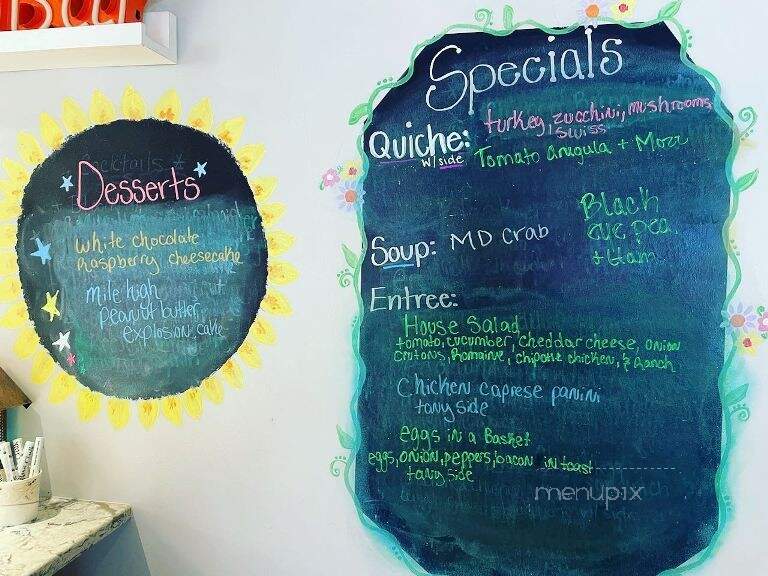 Desserts
white chocolate
Raspberry cheesecake
mile high
peanut butter
explosion cake
Specials
Quiche: turkey, zucchini, mushrooms
swiss
w/side Tomato Arugula + Mozz
Black
eye pea
+ Ham
Soup: MD Crab
Entree:
House Salad
tomato, cucumber, cheddar cheese, onion
crutons, Romaine, chipotle chicken, & Ranch
Chicken caprese panini
tany side
eggs in a Basket
eggs, onion, peppers, bacon in toast
tany side
menupix